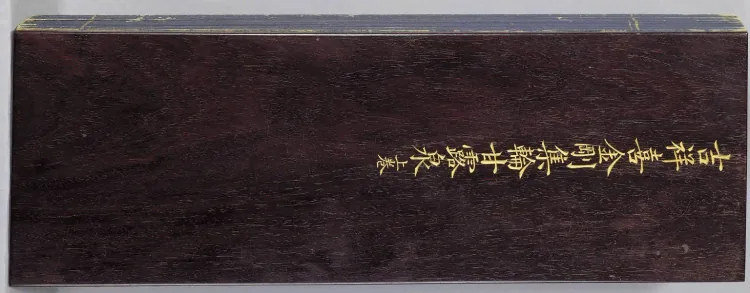 吉祥喜金剛集輪甘露泉 上卷